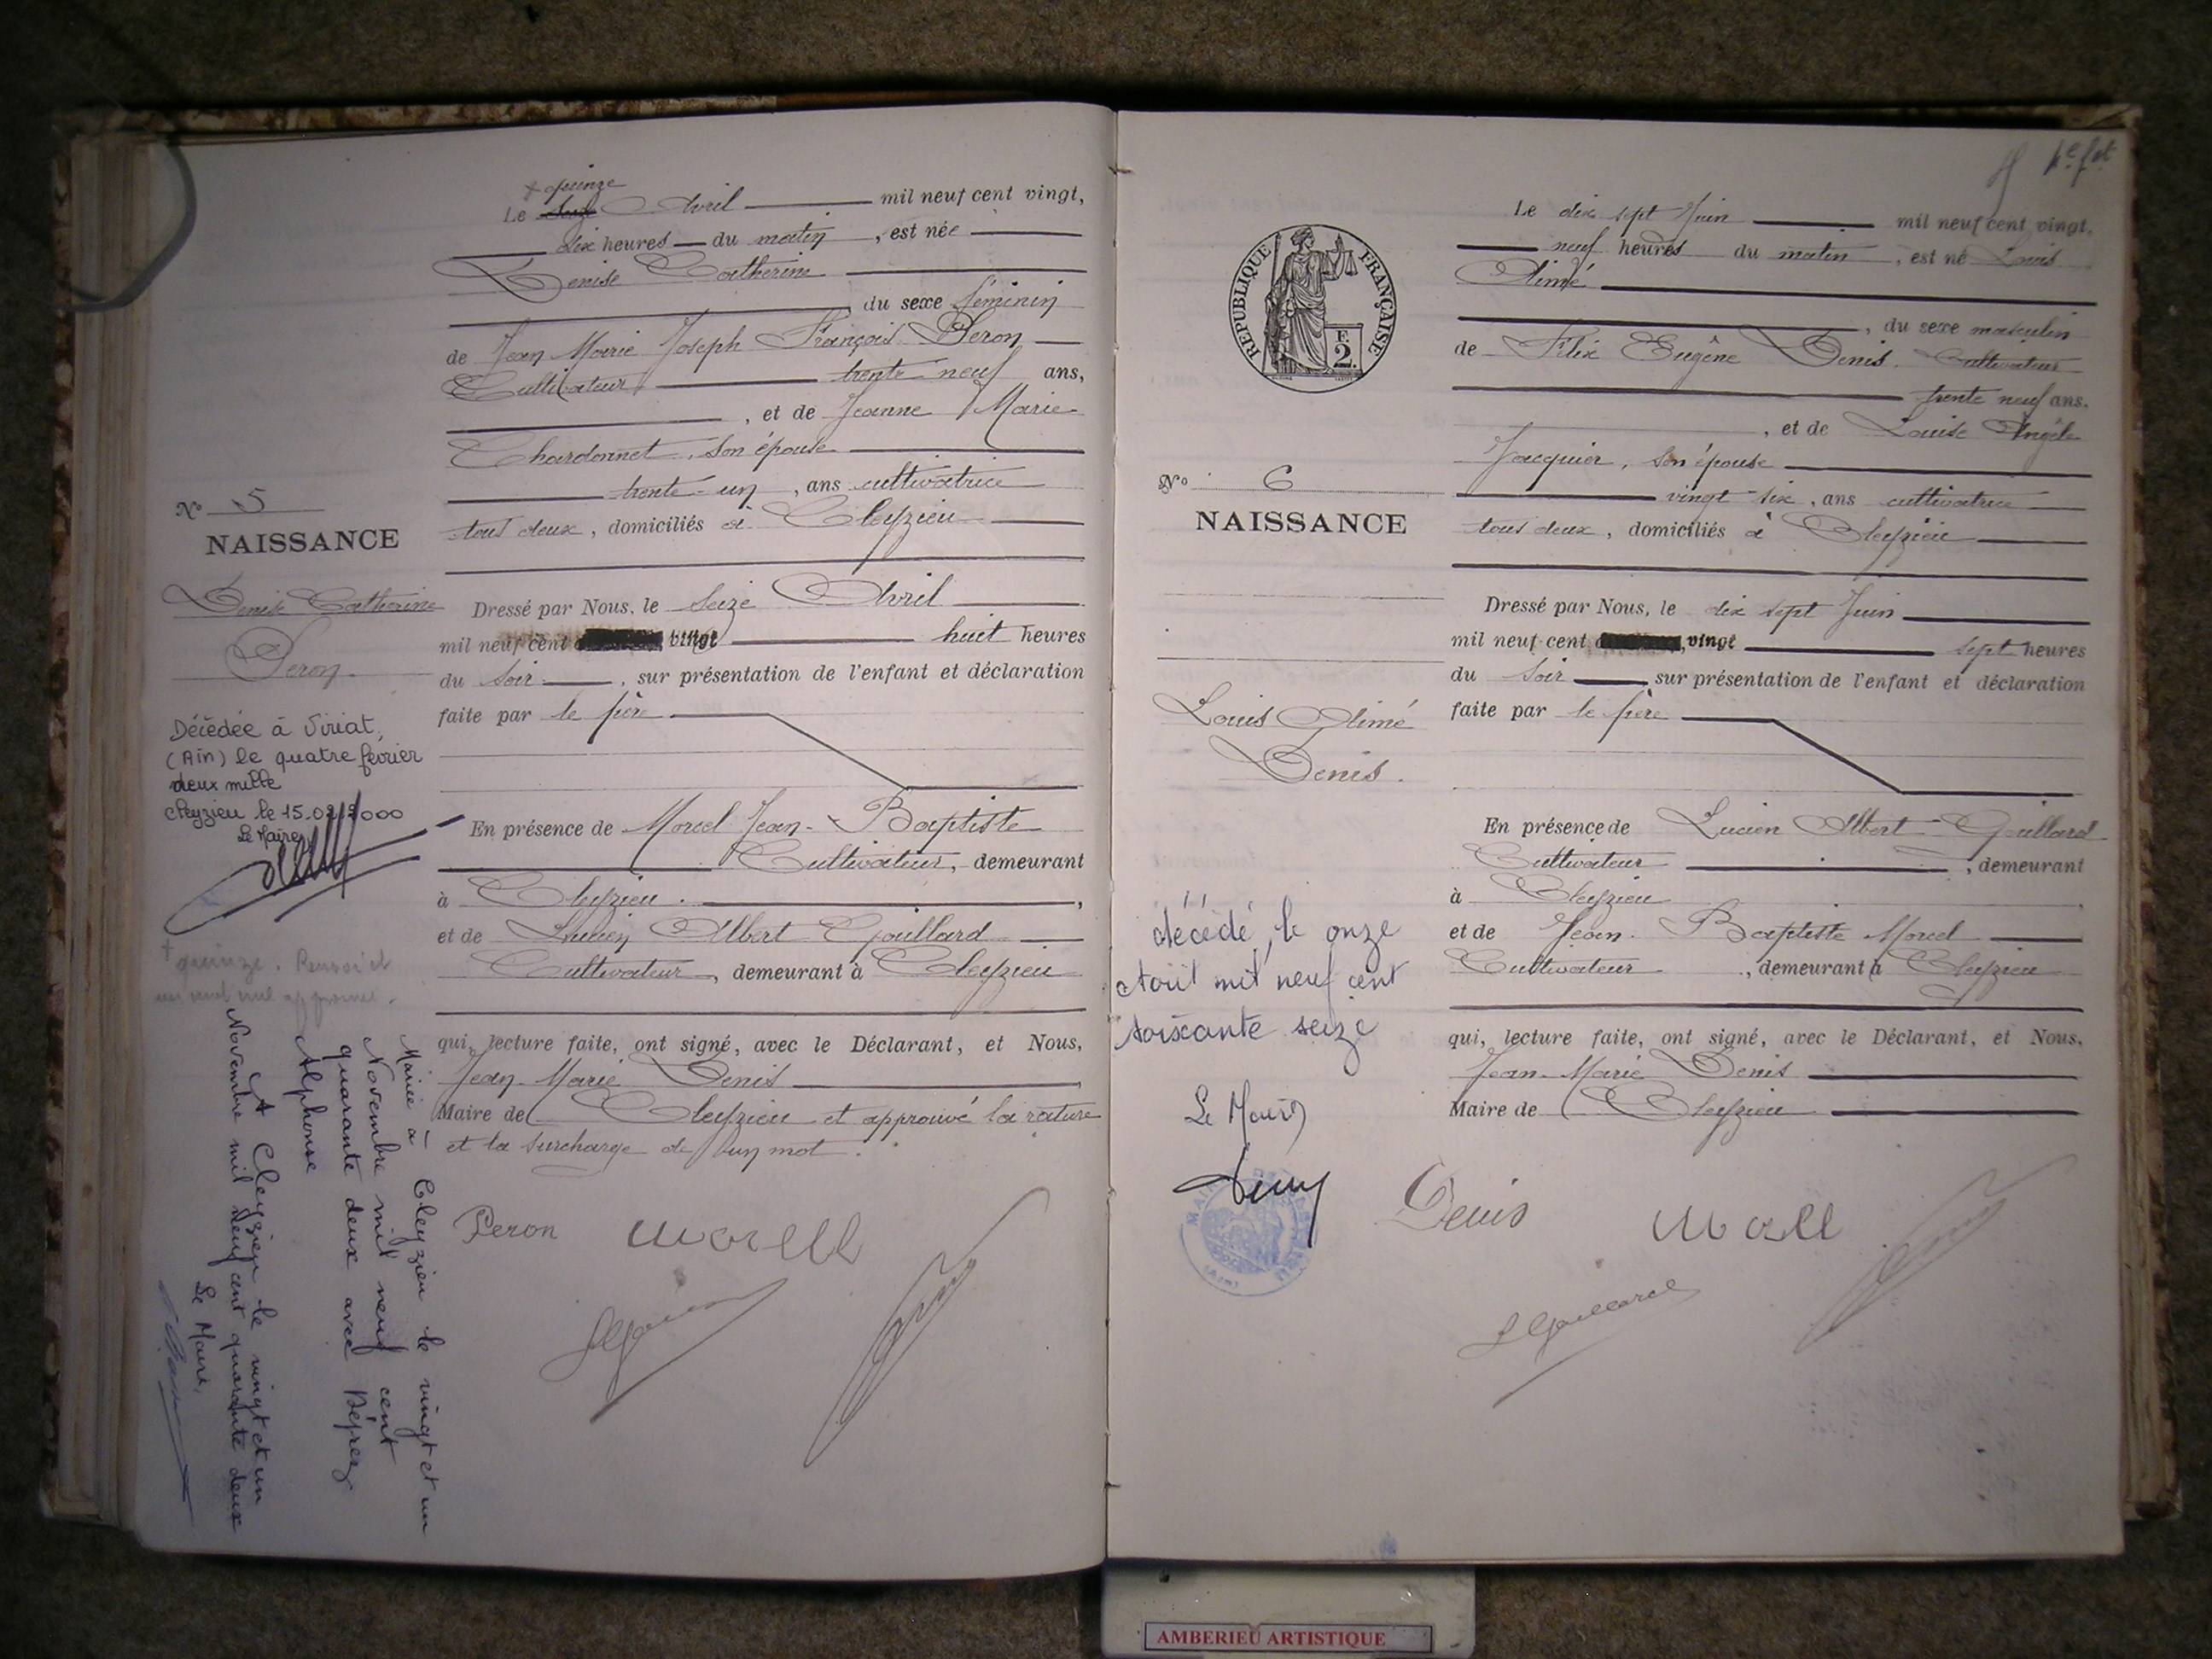 quinze
Le seize Avril mil neuf cent vingt,
dix heures du matin, est née
Denise Catherine
du sexe féminin
de Jean Marie Joseph François Peron
Cultivateur trente neuf ans,
, et de Jeanne Marie
Chardonnet, son épouse
trente-un, ans cultivatrice
tous deux, domiciliés à Cleyzieu
Nº 5
NAISSANCE
Denise Catherine
Peron.
Décédée à Viriat,
(Ain) le quatre février
deux mille
Cleyzieu le 15.02.2000
Le Maire
+ quinze. Renvoi et
un mot nul approuvé.
Mariée à Cleyzieu le vingt et un
Novembre mil neuf cent
quarante deux avec Déprez
Alphonse
A Cleyzieu le vingt et un
Novembre mil neuf cent quarante deux
Le Maire,
Dressé par Nous, le seize Avril
mil neuf cent vingt huit heures
du soir, sur présentation de l'enfant et déclaration
faite par le père
En présence de Morcel Jean-Baptiste
Cultivateur, demeurant
à Cleyzieu.
et de Lucien Albert Gaillard
Cultivateur, demeurant à Cleyzieu
qui, lecture faite, ont signé, avec le Déclarant, et Nous,
Jean-Marie Denis
Maire de Cleyzieu et approuvé la rature
et la surcharge de un mot.
Peron
5 1e fet
Le dix sept Juin mil neuf cent vingt,
neuf heures du matin, est né Louis
Aimé
, du sexe masculin
de Félix Eugène Denis. Cultivateur
trente neuf ans,
, et de Louise Angèle
Jacquier, son épouse
vingt-six, ans cultivatrice
tous deux, domiciliés à Cleyzieu
REPUBLIQUE FRANÇAISE
F.
2.
Nº 6
NAISSANCE
Louis Aimé
Denis.
décédé, le onze
Août mil neuf cent
soixante seize
Le Maire
Dressé par Nous, le dix sept Juin
mil neuf cent vingt sept heures
du soir sur présentation de l'enfant et déclaration
faite par le père
En présence de Lucien Albert Gaillard
Cultivateur, demeurant
à Cleyzieu
et de Jean-Baptiste Morcel
Cultivateur, demeurant à Cleyzieu
qui, lecture faite, ont signé, avec le Déclarant, et Nous,
Jean-Marie Denis
Maire de Cleyzieu
Denis
L Gaillard
AMBERIEU ARTISTIQUE